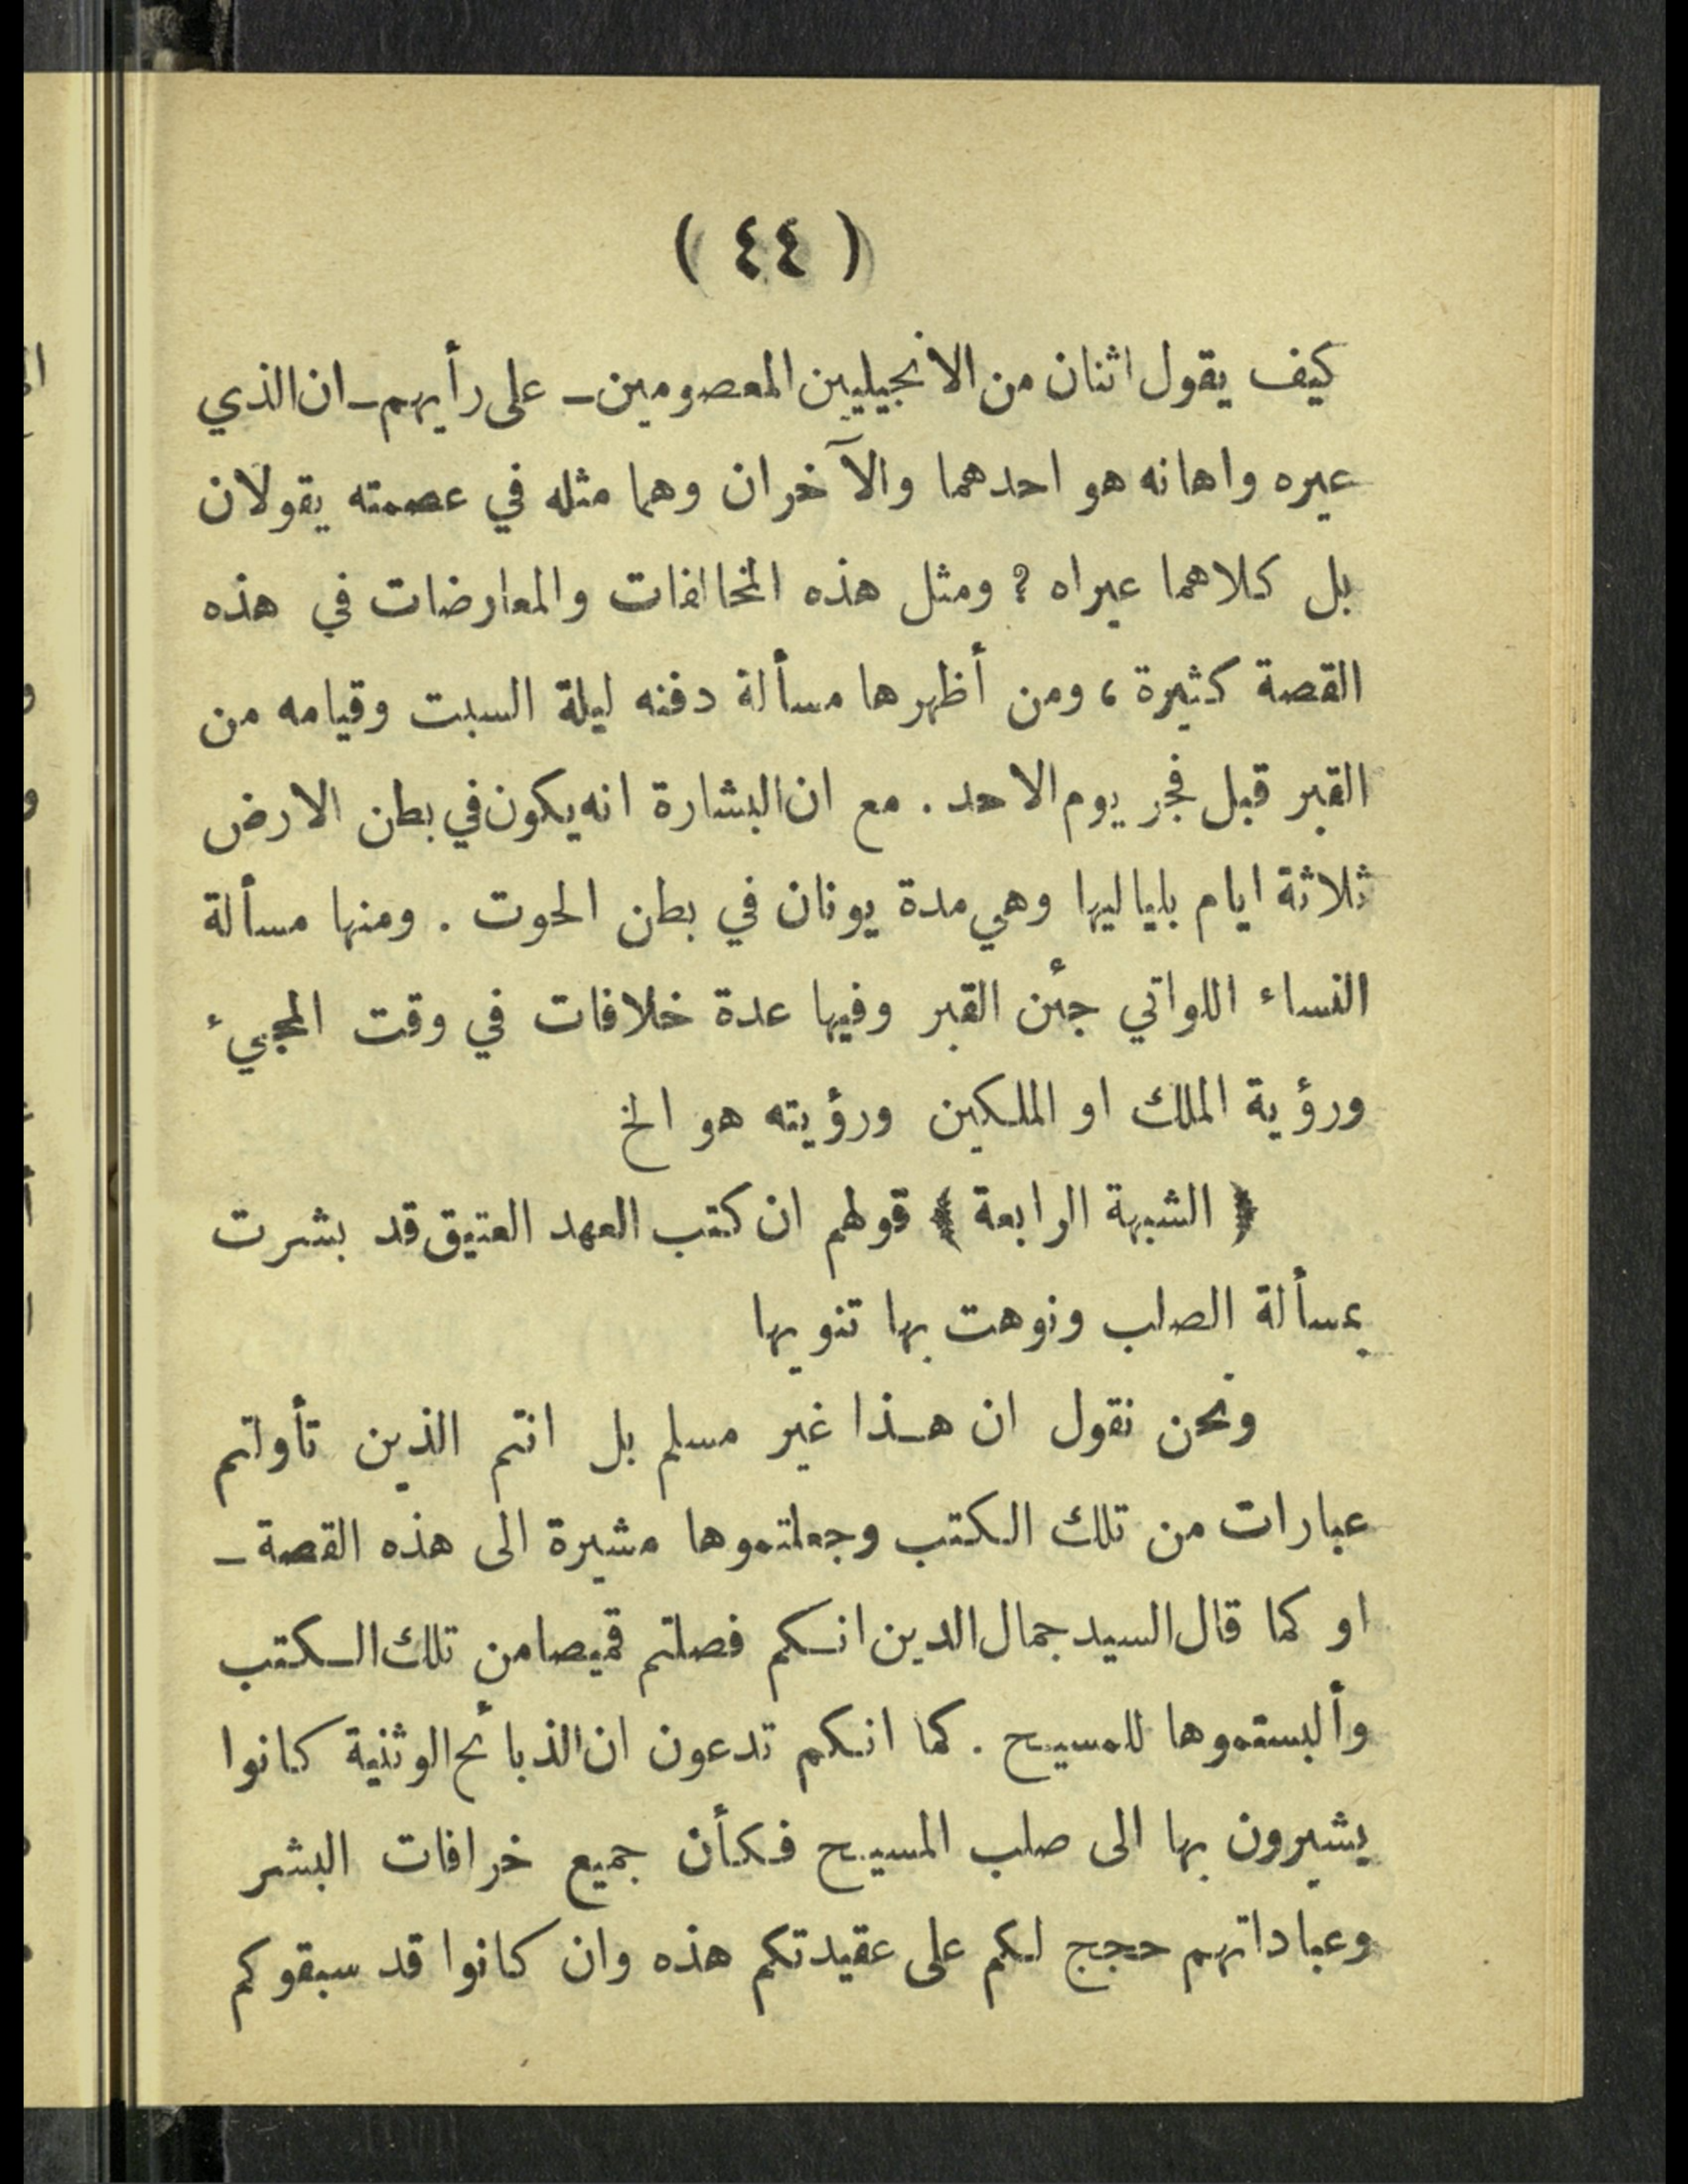 ( ٤٤ )
كيف يقول اثنان من الانجيليين المعصومين ـ على رأيهم ـ ان الذي
عيره واهانه هو احدهما والآخران وهما مثله في عصمته يقولان
بل كلاهما عيراه ؟ ومثل هذه المخالفات والمعارضات في هذه
القصة كثيرة ، ومن أظهرها مسألة دفنه ليلة السبت وقيامه من
القبر قبل فجر يوم الاحد . مع ان البشارة انه يكون في بطن الارض
ثلاثة ايام بلياليها وهي مدة يونان في بطن الحوت . ومنها مسألة
النساء اللواتي جئن القبر وفيها عدة خلافات في وقت المجيء
ورؤية الملك او الملكين ورؤيته هو الخ
﴿ الشبهة الرابعة ﴾ قولهم ان كتب العهد العتيق قد بشرت
بمسألة الصلب ونوهت بها تنويها
ونحن نقول ان هـذا غير مسلم بل انتم الذين تأولتم
عبارات من تلك الكتب وجعلتموها مشيرة الى هذه القصة ـ
او كما قال السيد جمال الدين انكم فصلتم قميصا من تلك الكتب
وألبستموها للمسيح . كما انكم تدعون ان الذبائح الوثنية كانوا
يشيرون بها الى صلب المسيح فكأن جميع خرافات البشر
وعباداتهم حجج لكم على عقيدتكم هذه وان كانوا قد سبقوكم